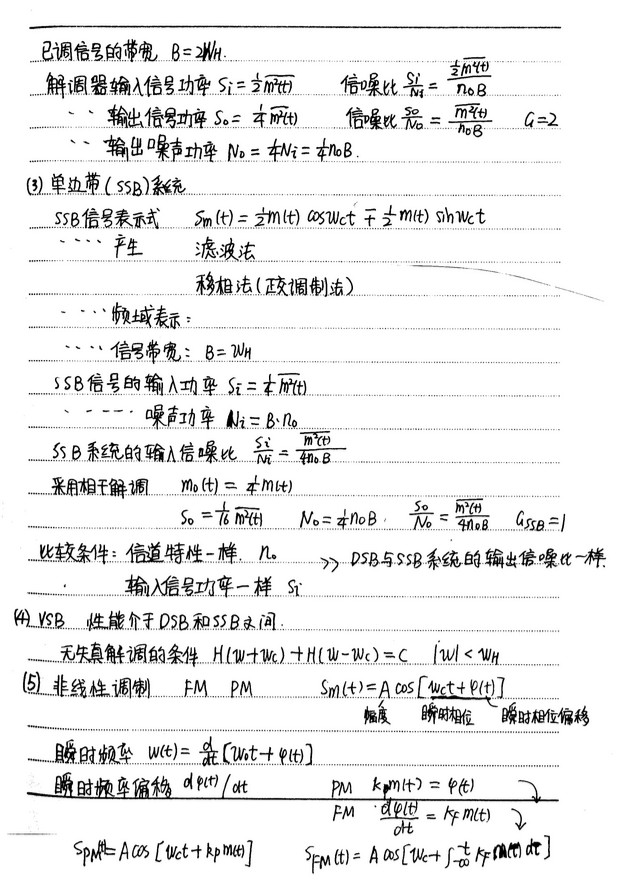 已调信号的带宽 B=2WH.
解调器输入信号功率 Si=½m²(t)‾ 信噪比 Si/Ni = ½m²(t)‾/n0B
·· 输出信号功率 So=¼m²(t)‾ 信噪比 So/No = m²(t)‾/n0B G=2
·· 输出噪声功率 No=¼Ni=¼n0B.
(3) 单边带(SSB)系统
SSB信号表示式 Sm(t)=½m(t) coswct ∓ ½m(t) sinwct
···· 产生 滤波法
移相法(正交调制法)
···· 频域表示:
···· 信号带宽: B=WH
SSB信号的输入功率 Si=¼m²(t)‾
····· 噪声功率 Ni=B·n0
SSB系统的输入信噪比 Si/Ni = m²(t)‾/4n0B
采用相干解调 mo(t)=¼m(t)
So=1/16 m²(t)‾ No=¼n0B. So/No = m²(t)‾/4n0B GSSB=1
比较条件: 信道特性一样. n0 >> DSB与SSB系统的输出信噪比一样.
输入信号功率一样 Si
(4) VSB 性能介于DSB和SSB之间.
无失真解调的条件 H(w+wc)+H(w-wc)=C |w|<wH
(5) 非线性调制 FM PM Sm(t)=A cos[wct+φ(t)]
幅度 瞬时相位 瞬时相位偏移
瞬时频率 w(t)=d/dt[w0t+φ(t)]
瞬时频率偏移 dφ(t)/dt PM kpm(t)=φ(t)
FM dφ(t)/dt = KFm(t)
SPM(t)=A cos[wct+kpm(t)] SFM(t)=A cos[wct+∫-∞t KF m(t)dt]